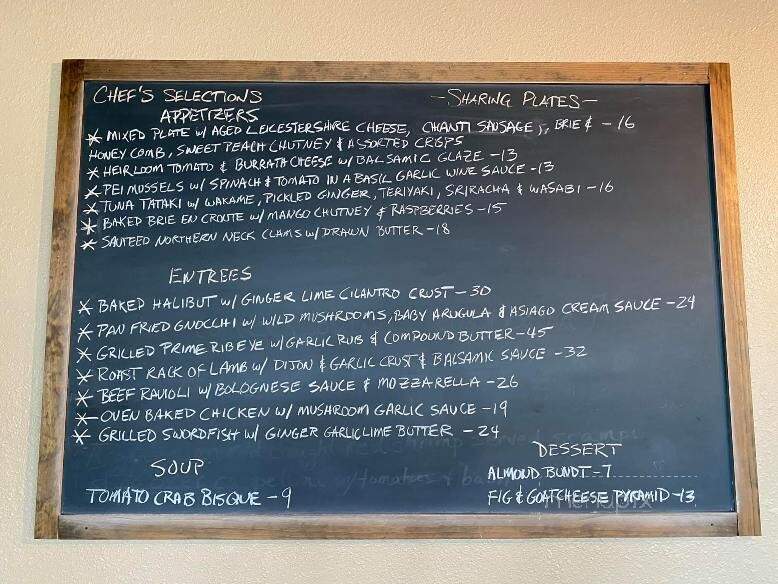 CHEF'S SELECTIONS
- SHARING PLATES -
APPETIZERS
* MIXED PLATE w/ AGED LEICESTERSHIRE CHEESE, CHANTI SAUSAGE, BRIE & - 16
HONEY COMB, SWEET PEACH CHUTNEY & ASSORTED CRISPS
* HEIRLOOM TOMATO & BURRATA CHEESE w/ BALSAMIC GLAZE - 13
* PEI MUSSELS w/ SPINACH & TOMATO IN A BASIL GARLIC WINE SAUCE - 13
* TUNA TATAKI w/ WAKAME, PICKLED GINGER, TERIYAKI, SRIRACHA & WASABI - 16
* BAKED BRIE EN CROUTE w/ MANGO CHUTNEY & RASPBERRIES - 15
* SAUTEED NORTHERN NECK CLAMS w/ DRAWN BUTTER - 18
ENTREES
* BAKED HALIBUT w/ GINGER LIME CILANTRO CRUST - 30
* PAN FRIED GNOCCHI w/ WILD MUSHROOMS, BABY ARUGULA & ASIAGO CREAM SAUCE - 24
* GRILLED PRIME RIBEYE w/ GARLIC RUB & COMPOUND BUTTER - 45
* ROAST RACK OF LAMB w/ DIJON & GARLIC CRUST & BALSAMIC SAUCE - 32
* BEEF RAVIOLI w/ BOLOGNESE SAUCE & MOZZARELLA - 26
* OVEN BAKED CHICKEN w/ MUSHROOM GARLIC SAUCE - 19
* GRILLED SWORDFISH w/ GINGER GARLIC LIME BUTTER - 24
SOUP
TOMATO CRAB BISQUE - 9
DESSERT
ALMOND BUNDT - 7
FIG & GOAT CHEESE PYRAMID - 13
menupix